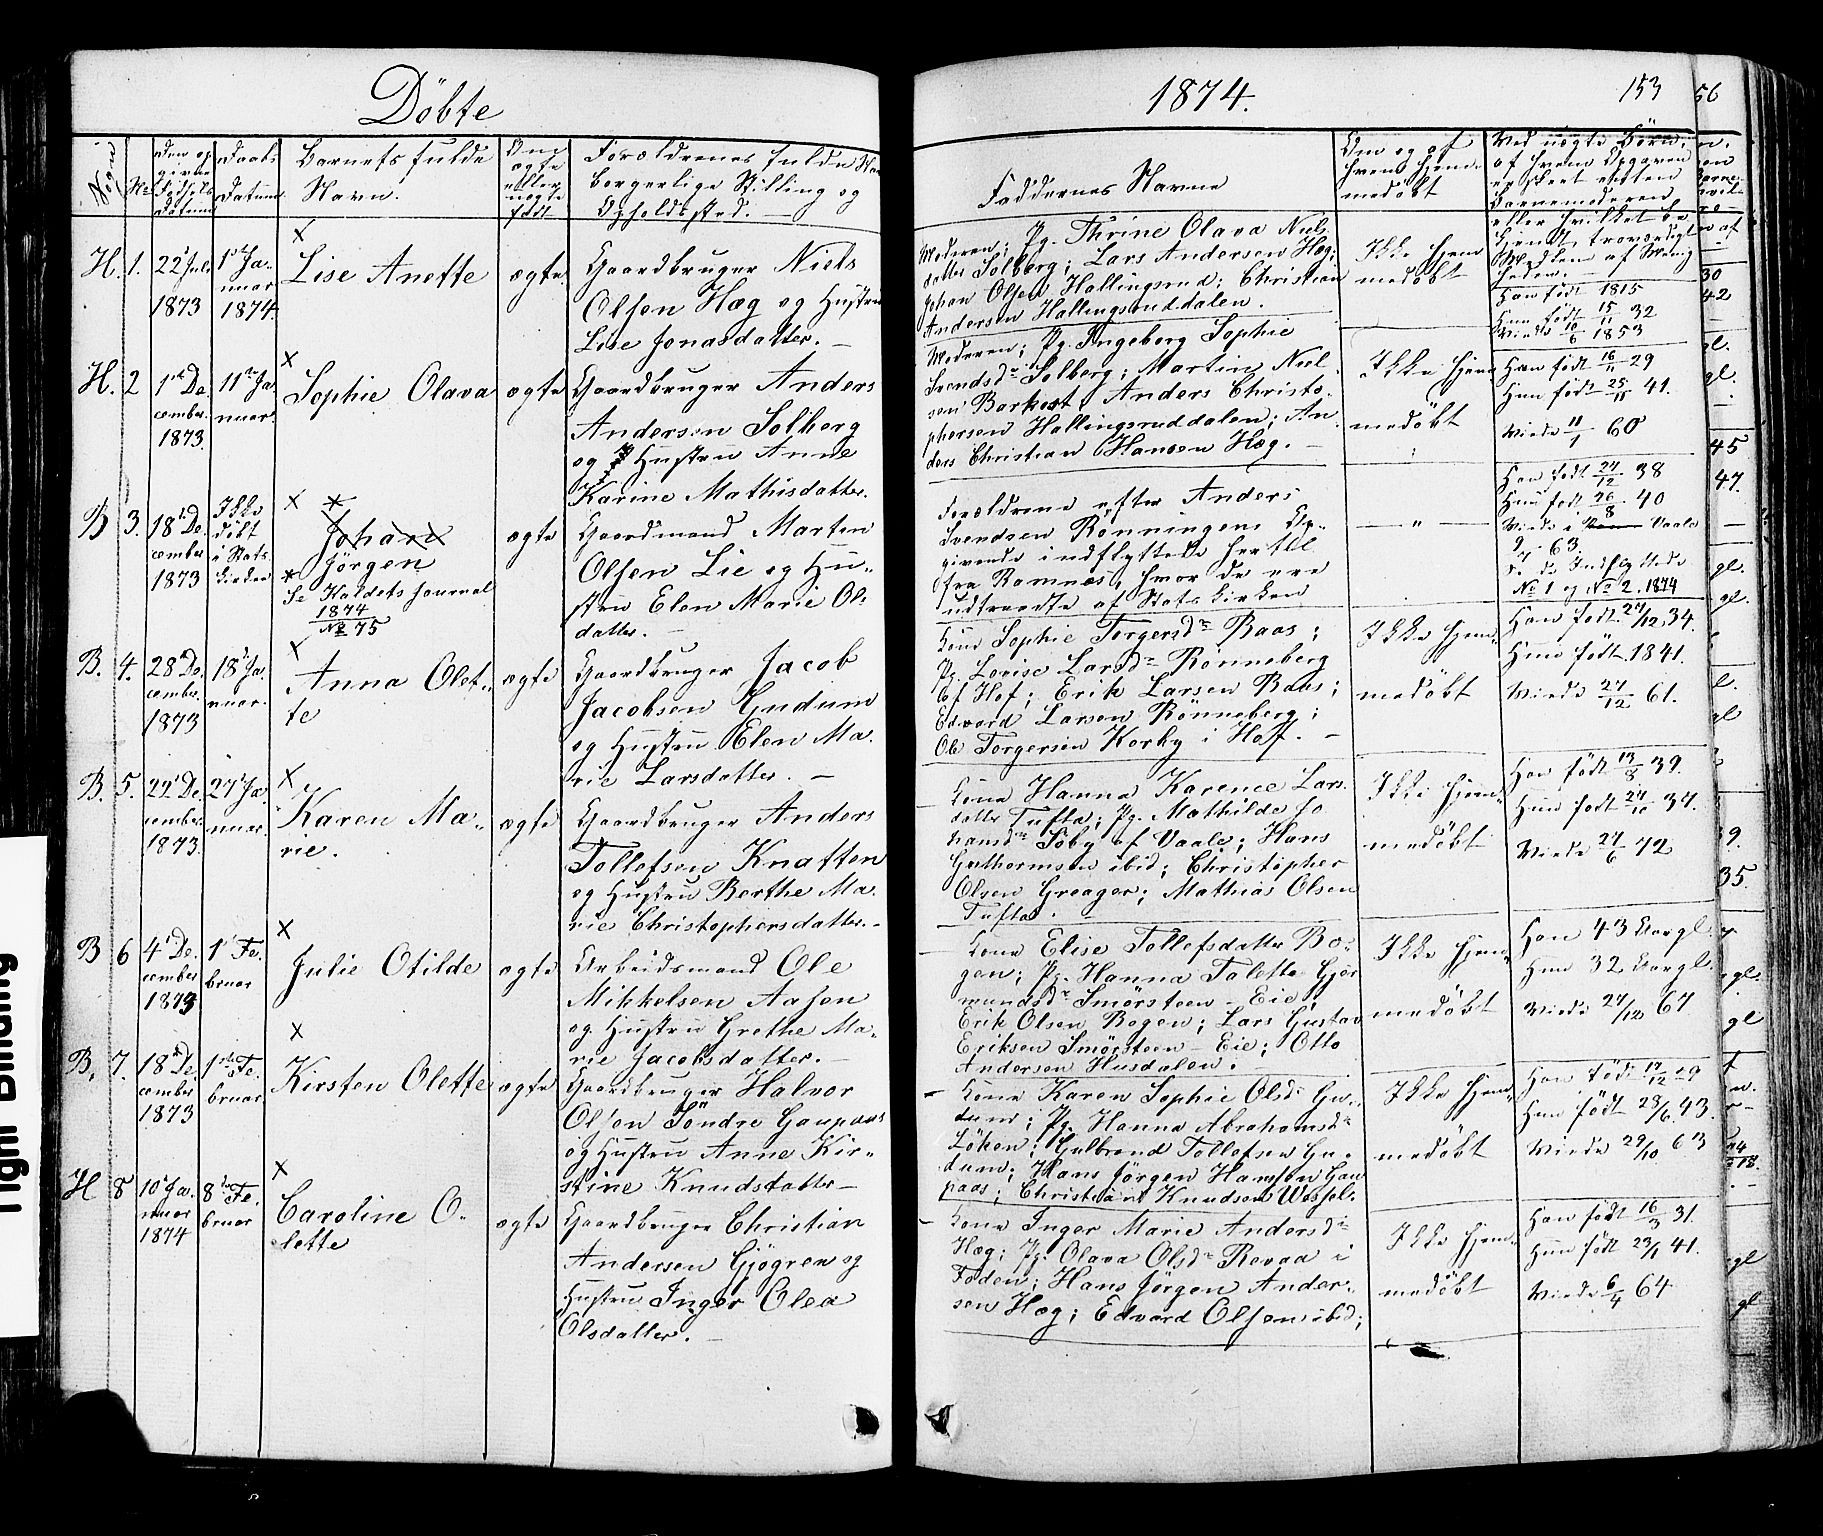 Döbte
1874.
153
56
Sogn
No
Den op
givne
Födsels
Datum
Daabs
Datum
Barnets fulde
Navn.
Om
ægte
eller
uægte
født
Forældrenes fulde Navn
borgerlige Stilling og
Opholdssted.
Faddernes Navne
Om og af
hvem hjem-
medöbt
Ved uægte Börn:
af hvem Opgaven
er skeet efter
Barnemoderen
eller hvilket be
kjendt, troværdigt
Medlem af Menig
heden.
H. 1. 22 Juli
1873
1 Ja-
nuar
1874.
×
Lise Anette
ægte
Gaardbruger Niels
Olsen Hæg og Hustru
Lise Jonasdatter. —
Moderen; Pg. Thrine Olava Niels
datter Solberg; Lars Andersen Hæg;
Johan Olsen Hallingsrud; Christian
Andersen Hallingsruddalen.
Ikke hjem
medöbt
Han født 1815
Hun født 15/11 32
Viede 10/6 1853
H. 2 1ste De
cember.
1873.
11te Ja
nuar.
×
Sophie Olava
ægte
Gaardbruger Anders
Andersen Solberg
og Hustru Anne
Karine Mathisdatter.
Moderen; Pg. Ingeborg Sophie
Svendsdr Solberg; Martin Niel
sen Barkost; Anders Christo-
phersen Hallingsruddalen; An
ders Christian Hansen Hæg. —
Ikke hjem
medöbt
Han født 16/11 29
Hun født 25/11 41.
Viede 11/1 60
B 3. 18te De
cember
1873
Ikke
döbt
i Stats
kirken
× *
Johan
Jörgen
* Se Kaldets Journal
1874
No 75
ægte
Gaardmand Marten
Olsen Lie og Hu-
stru Elen Marie Ol-
datter. —
Forældrene efter Anders
Svendsen Rönningens Op-
givende indflyttede hertil
fra Ramnes, hvor de ere
udtraadte af Statskirken
— " —
Han født 27/12 38
Hun født 26/8 40
Viede i Vaale
9/7 63.
Se de Indflyttede
No 1 og No 2. 1874
B. 4. 28 De
cember.
1873
18 Ja
nuar.
×
Anna Olet-
te
ægte
Gaardbruger Jacob
Jacobsen Gudum
og Hustru Elen Ma-
rie Larsdatter. —
Kone Sophie Torgersdr Baas;
Pg. Lovise Larsdr Rönneberg
af Hof; Erik Larsen Baas;
Edvard Larsen Rönneberg;
Ole Torgersen Korby i Hof. —
Ikke hjem-
medöbt
Han født 27/12 34.
Hun født 1841.
Viede 27/12 61.
B. 5. 22 De
cember.
1873.
27 Ja
nuar.
×
Karen Ma-
rie.
ægte
Gaardbruger Anders
Tollefsen Knatten
og Hustru Berthe Ma-
rie Christophersdatter. —
Kone Hanna Karence Lars
datter Tufta; Pg. Mathilde Jo
hansdr Söby af Vaale; Hans
Guthormsen ibid; Christopher
Olsen Greager; Mathias Olsen
Tufta.
Ikke hjem-
medöbt
Han født 13/8 39.
Hun født 27/10 37.
Viede 27/6 72
B 6 4 De
cember
1873
1 Fe
bruar
×
Julie Otilde
ægte
Arbeidsmand Ole
Mikkelsen Aasen
og Hustru Grethe Ma-
rie Jacobsdatter. —
Kone Elise Tollefsdatter Bo-
gen; Pg. Hanna Talette Gjör
mundsdr Smörsteen-Eie;
Erik Olsen Bogen; Lars Gustav
Eriksen Smörsteen-Eie; Otto
Andersen Husdalen.
Ikke hjem-
medöbt
Han 43 Aar gl.
Hun 32 Aar gl.
Viede 27/12 67
B. 7. 18 De
cember
1873
1ste Fe
bruar
×
Kirsten Olette
ægte
Gaardbruger Halvor
Olsen Söndre Gaupaas
og Hustru Anne Kir-
stine Knudsdatter —
Kone Karen Sophie Olsdr Gu-
dum; Pg. Hanna Abrahamsdr
Löken; Gulbrand Tollefsen Gu-
dum; Hans Jörgen Hansen Gau
paas; Christian Knudsen
Ikke hjem-
medöbt
Han født 17/12 29
Hun født 28/6 43.
Viede 29/10 63
H 8 10 Ja
nuar
1874
8de Fe
bruar
×
Caroline O-
lette
ægte
Gaardbruger Christian
Andersen Gjögren og
Hustru Inger Olea
Olsdatter. —
Kone Inger Marie Andersdr
Hæg; Pg. Olava Olsdr Revaa i
Foden; Hans Jörgen Ander-
sen Hæg; Edvard Olsen ibid;
Ikke hjem-
medöbt
Han født 16/3 31.
Hun født 23/1 41.
Viede 6/4 64.
Tight Binding